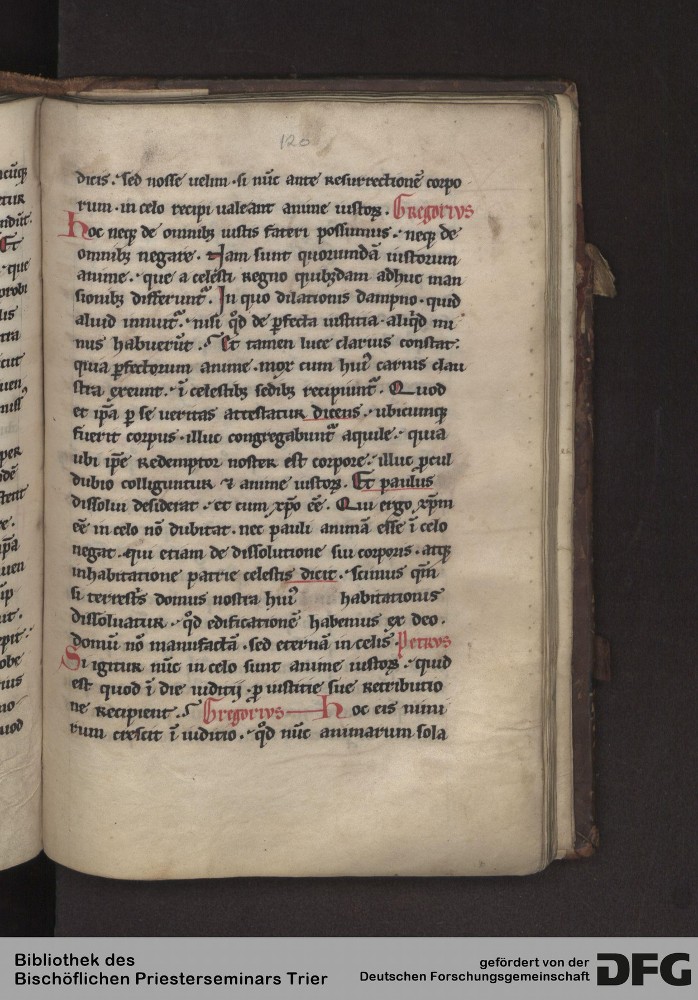 120
dicis. Sed nosse uelim. si nūc ante Resurrectionē corpo
rum. in celo recipi ualeant anime iustoꝝ. Gregorivs
Hoc neqꝫ de omnibꝫ iustis fateri possumus. neqꝫ de
omnibꝫ negare. Nam sunt quorumdā iustorum
anime. que a celesti Regno quibꝫdam adhuc man
sionibꝫ differunt᷑. In quo dilationis dampno. quid
aliud innuit᷑. nisi qd̄ de ꝑfecta iusticia. aliq̇d mi
nus habuerūt. Et tamen luce clarius constat:
quia ꝑfectorum anime. mox cum huı᷒ carnis clau
stra exeunt. ī celestibꝫ sedibꝫ recipiunt᷑. Quod
et ip̄a ꝑ se ueritas attestatur dicens. ubicumqꝫ
fuerit corpus. illuc congregabunt᷑ aquile. quia
ubi ip̄e Redemptor noster est corpore. illuc ꝓcul
dubio colliguntur ⁊ anime iustoꝝ. Et paulus
dissolui desiderat. et cum xp̄o eē. Qui ergo xp̄m
eē in celo nō dubitat. nec pauli animā esse ī celo
negat. qui etiam de dissolutione sui corporis. atqꝫ
inhabitatione patrie celestis dicit. scimus qm̄
si terrestris domus nostra huı᷒ habitationis
dissoluatur. qd̄ edificationē habemus ex deo.
domū nō manufactā. sed eternā in celis. Petrvs
Si igitur nūc in celo sunt anime iustoꝝ. quid
est quod ī die iudicij. ꝓ iusticie sue Retributio
ne Recipient. Gregorivs Hoc eis nimi
rum crescit ī iudicio. qd̄ nūc animarum sola
ncūqꝫ
Et
que
probi
tra
cut
uen
per
uen
pepit
nus
uod
Bibliothek des
Bischöflichen Priesterseminars Trier
gefördert von der
Deutschen Forschungsgemeinschaft
DFG